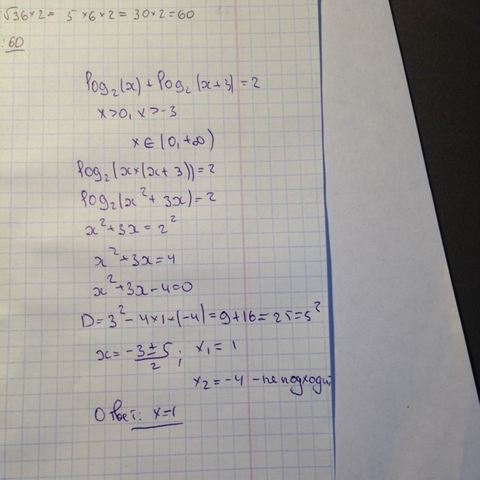 √36×2= 5×6×2=30×2=60
:60
log₂(x)+log₂(x+3)=2
x>0, x>-3
x∈(0,+∞)
log₂(x×(x+3))=2
log₂(x²+3x)=2
x²+3x=2²
x²+3x=4
x²+3x-4=0
D=3²-4×1×(-4)=9+16=25=5²
x=(-3±5)/2; x₁=1
x₂=-4 - не подходит
Ответ: x=1